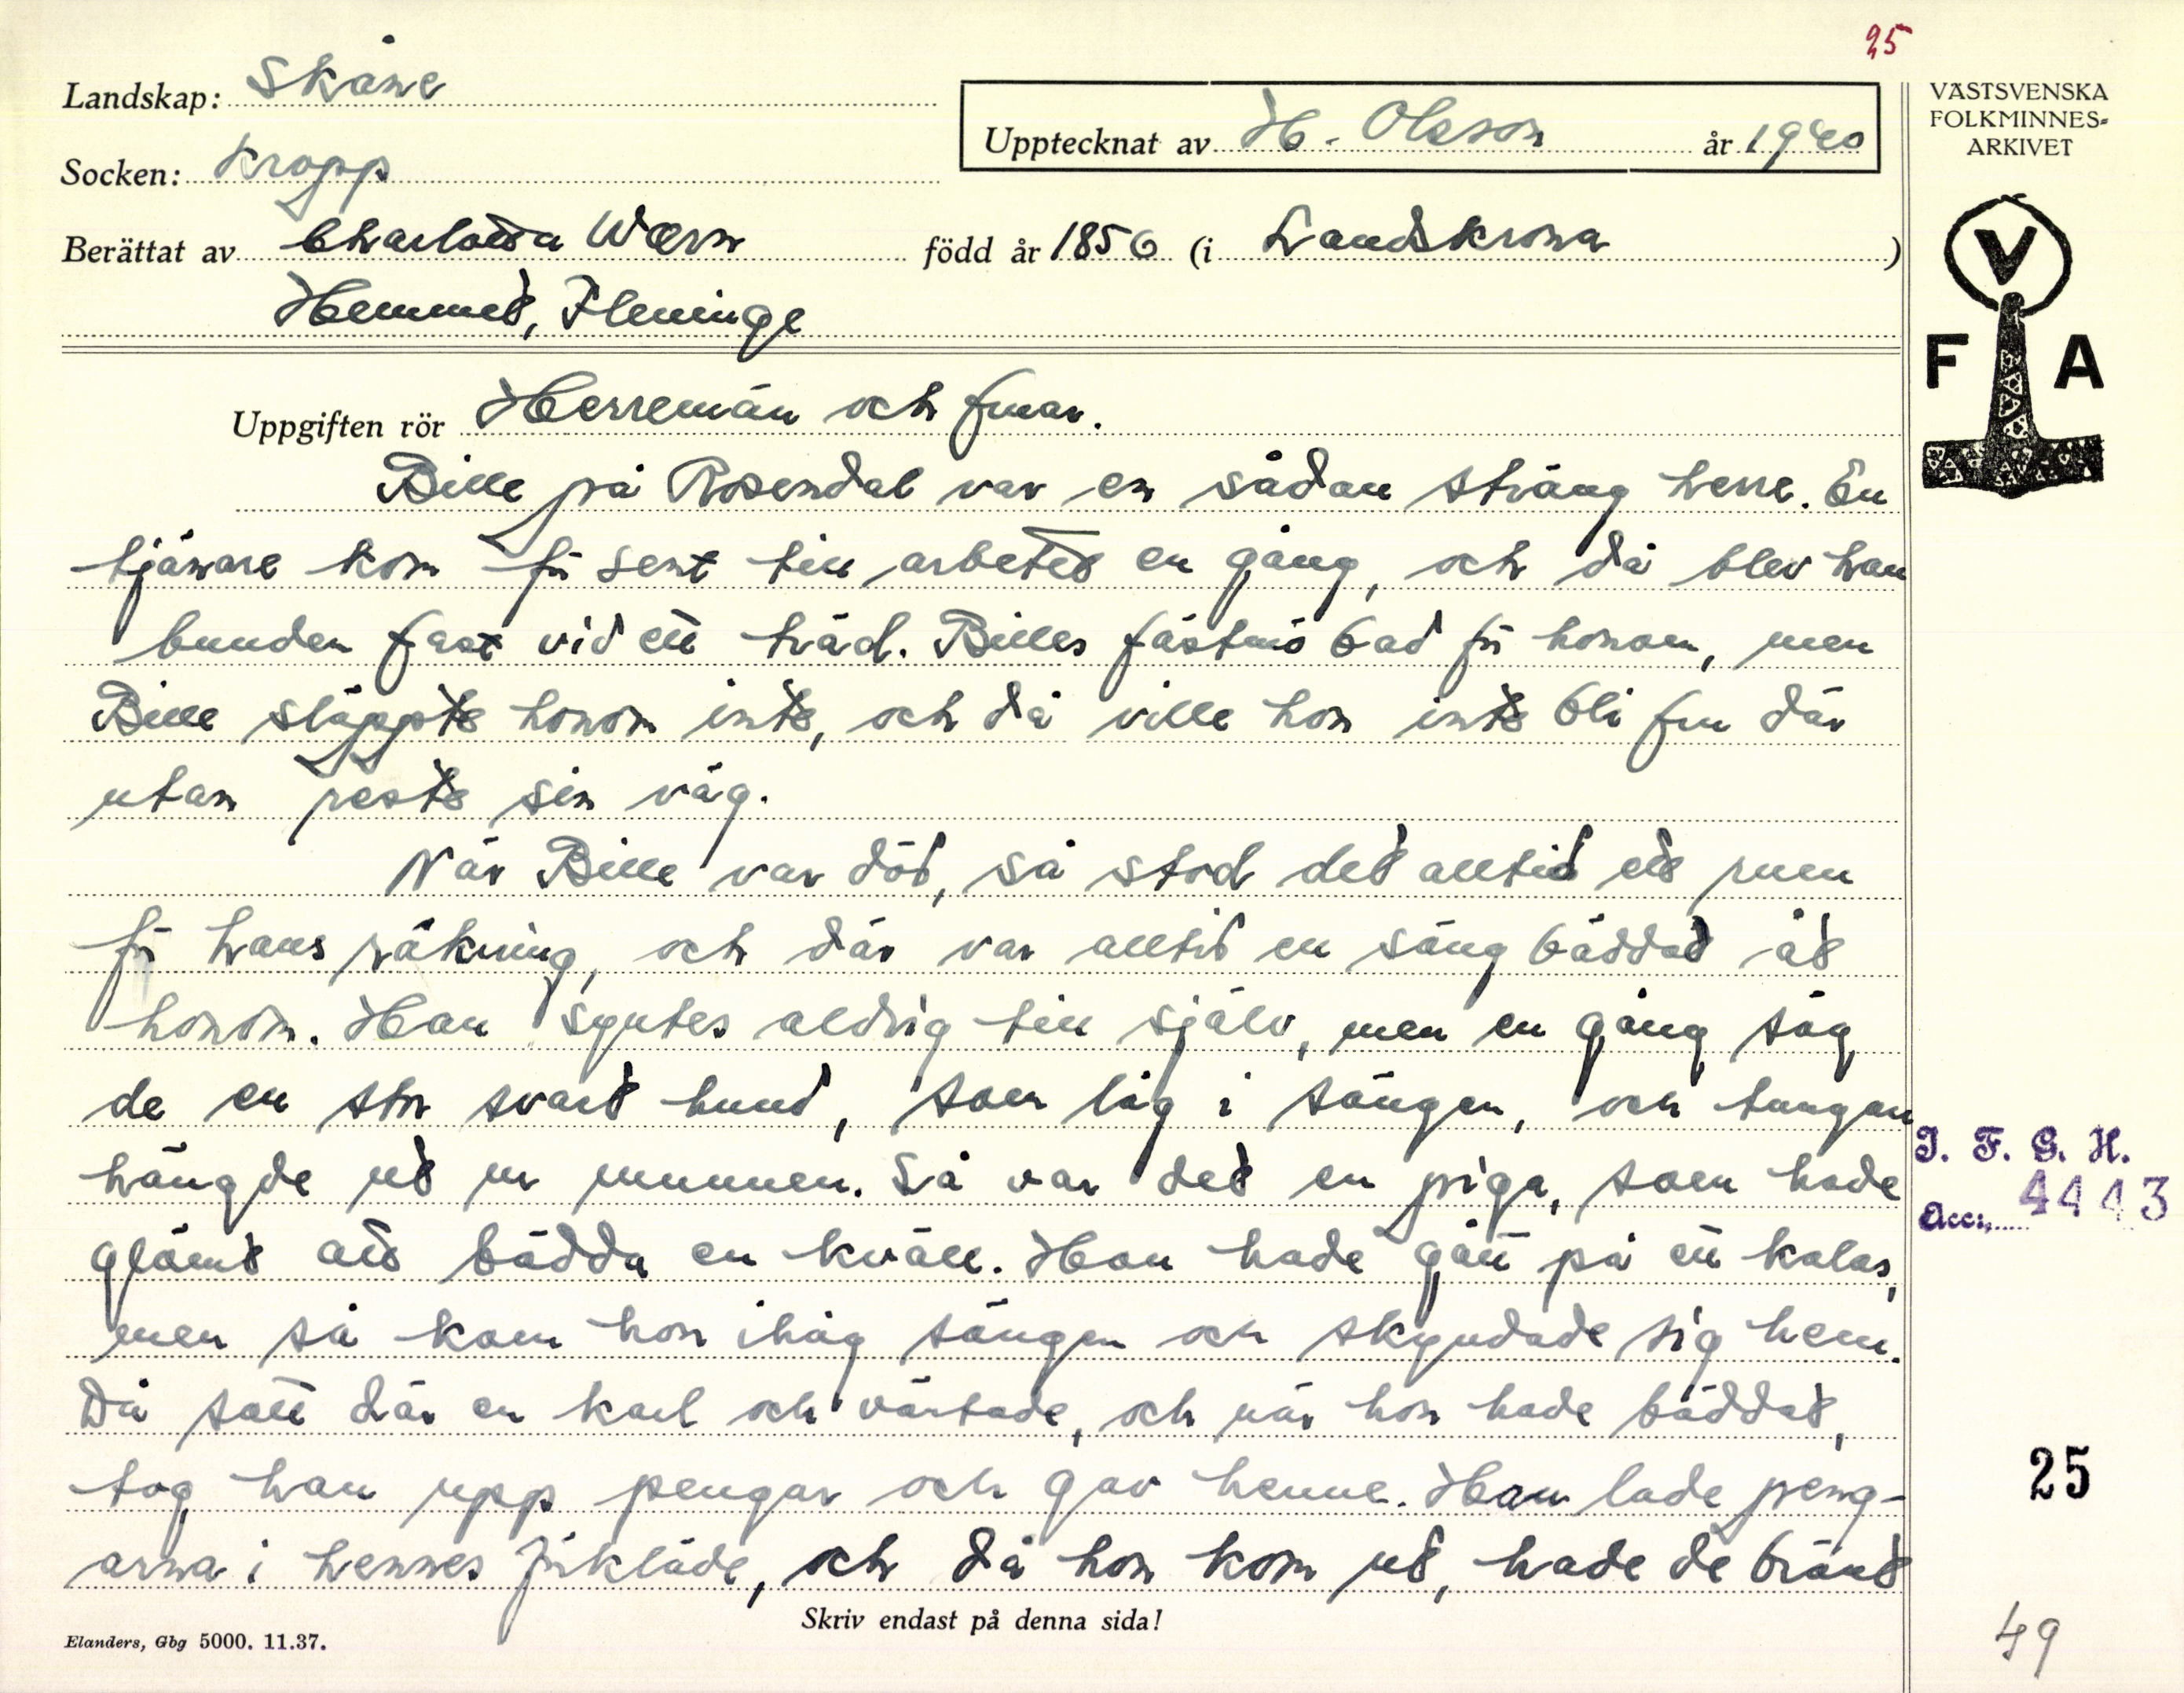 25
Landskap: Skåne
Upptecknat av H. Olsson år 1940
VÄSTSVENSKA
FOLKMINNES-
ARKIVET
Socken: Kropp
Berättat av Charlotta Wærn född år 1856 (i Landskrona)
Hemmet, Fleninge
V
F A
Uppgiften rör Herremän och fruar.
Bille på Rosendal var en sådan sträng herre. En
tjänare kom för sent till arbetet en gång, och då blev han
bunden fast vid ett träd. Billes fästmö bad för honom, men
Bille släppte honom inte, och då ville hon inte bli fru där
utan reste sin väg.
När Bille var död, så stod det alltid ett rum
för hans räkning, och där var alltid en säng bäddad åt
honom. Han syntes aldrig till själv, men en gång såg
de en stor svart hund, som låg i sängen, och tungan
hängde ut ur munnen. Så var det en piga, som hade
glömt att bädda en kväll. Hon hade gått på ett kalas,
men så kom hon ihåg sängen och skyndade sig hem.
Då satt där en karl och väntade, och när hon hade bäddat,
tog han upp pengar och gav henne. Han lade peng-
arna i hennes förkläde, och då hon kom ut, hade de bränt
I. F. G. H.
Acc: 4443
25
Skriv endast på denna sida!
Elanders, Gbg 5000. 11.37.
49